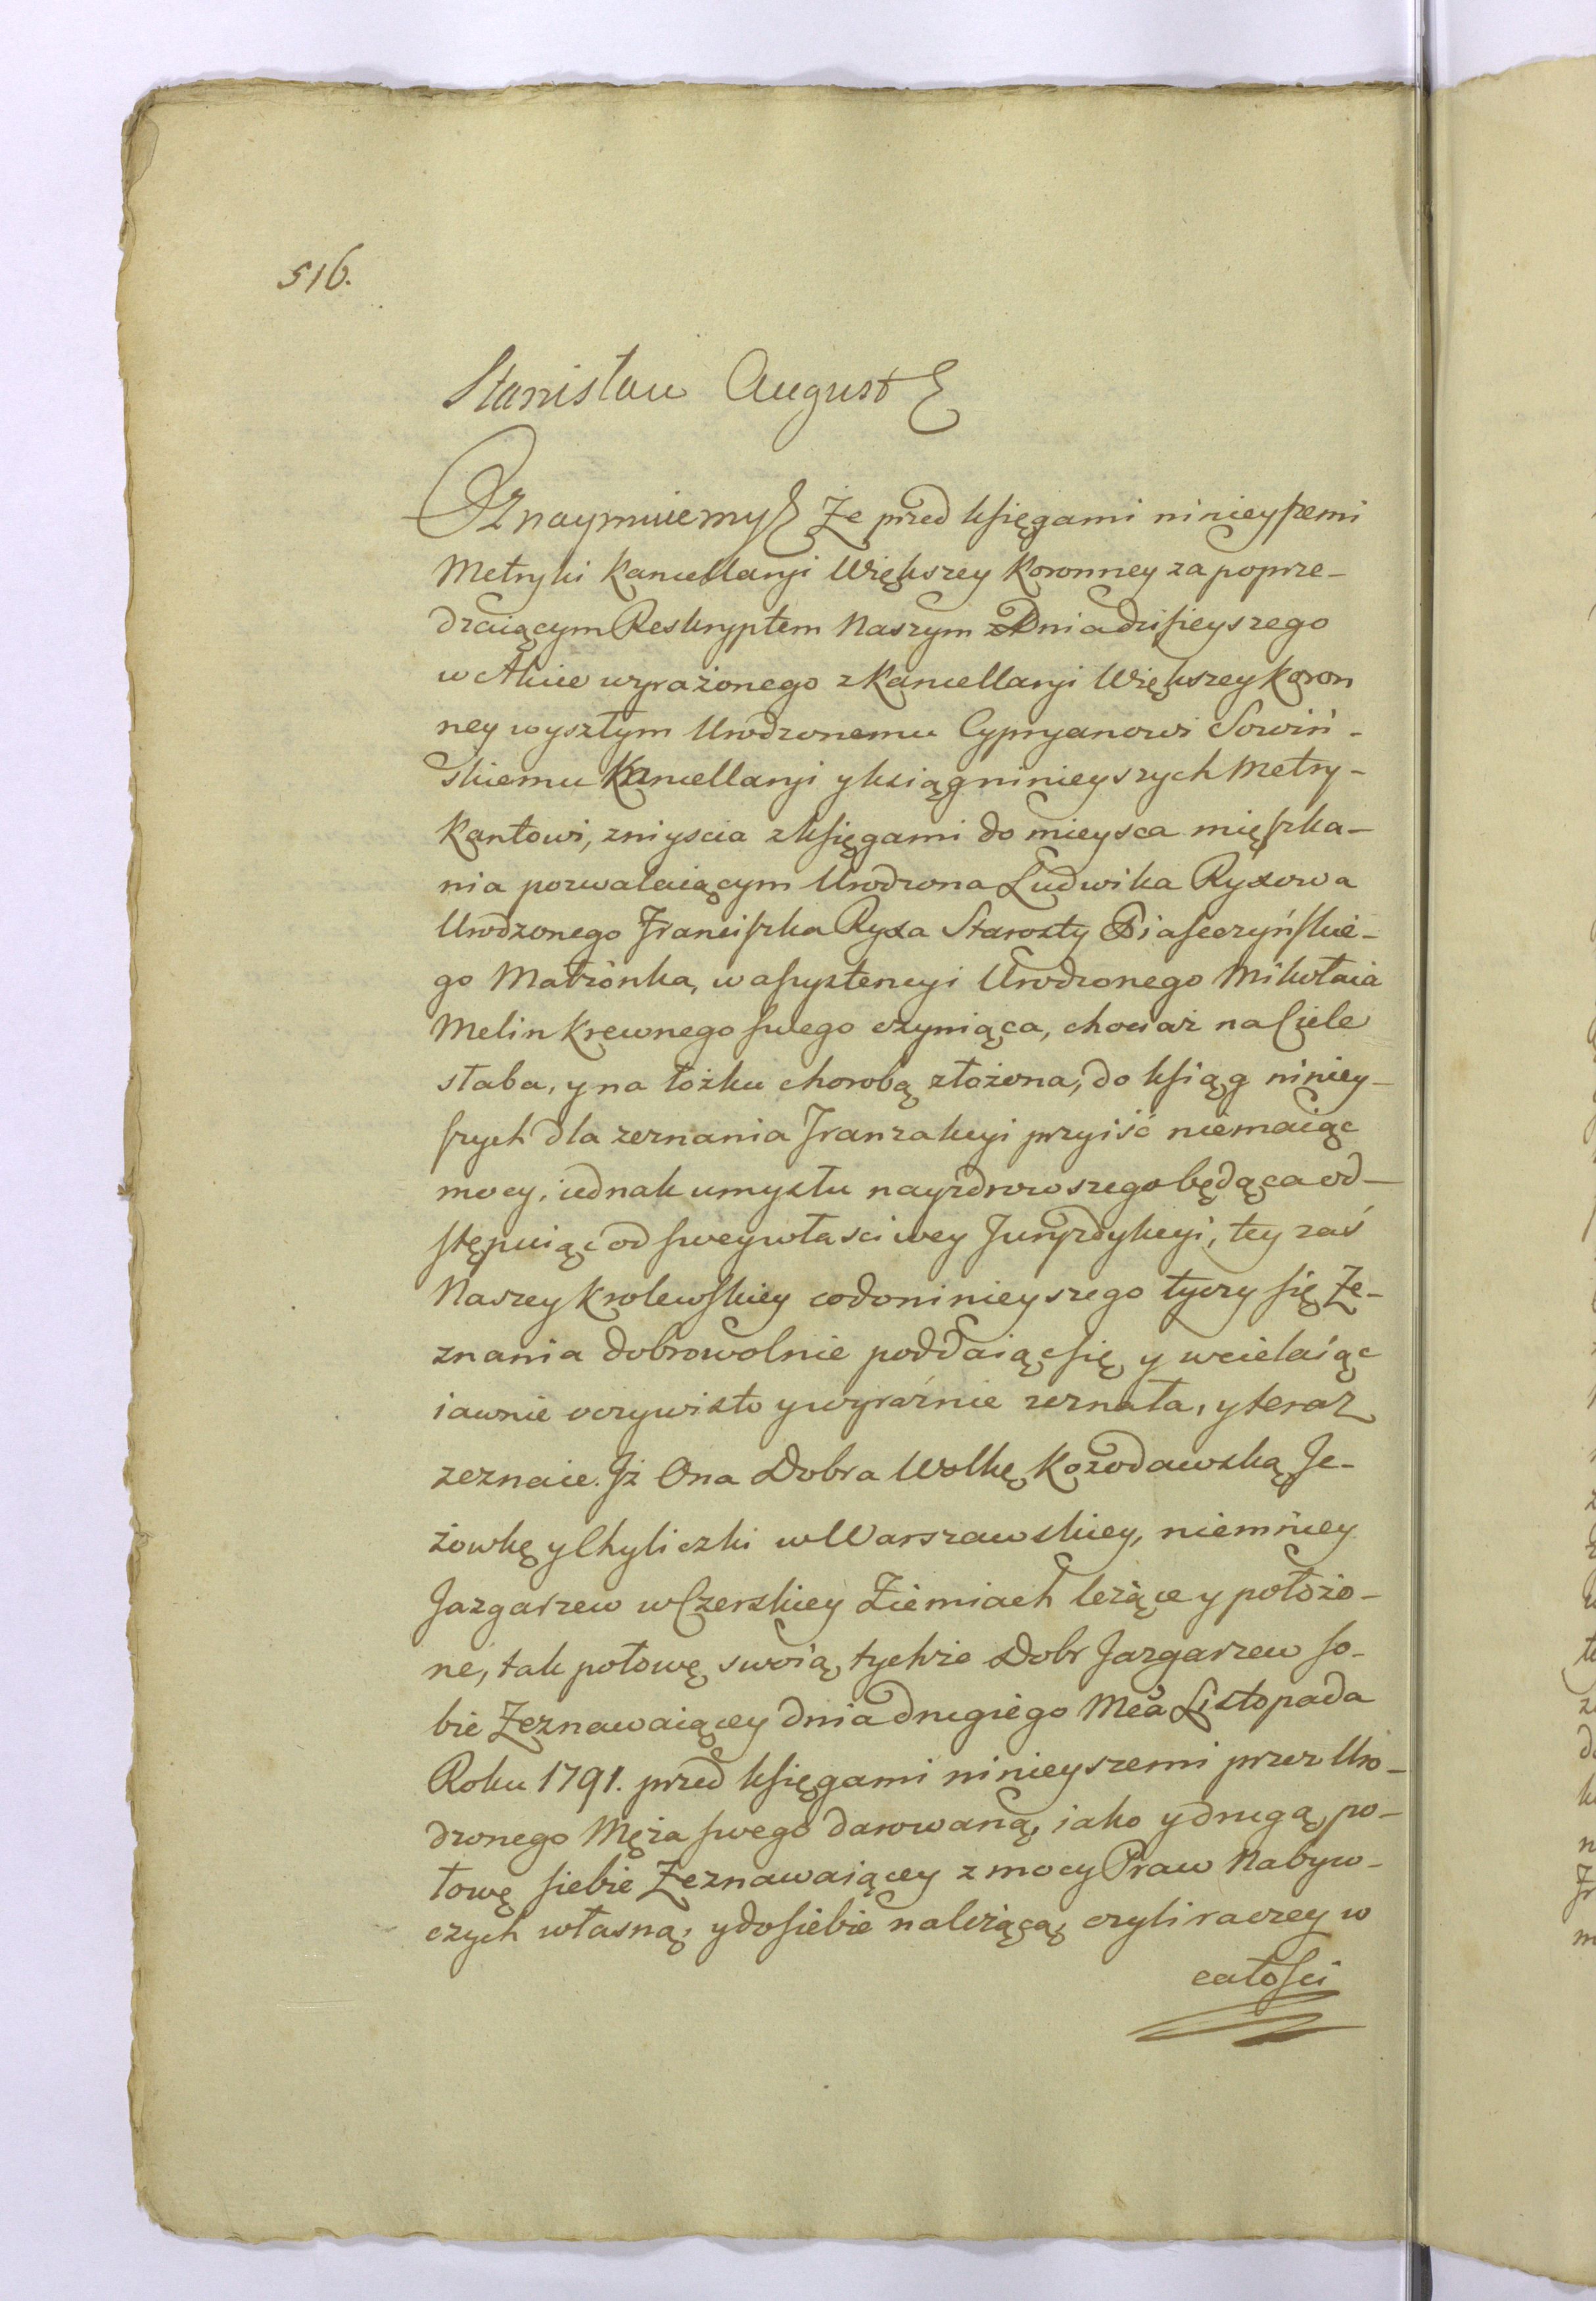 516.
Stanisław August
Oznaymuiemy Że przed księgami ninieyszemi
Metryki Kancellaryi Większey Koronney za poprze-
dzaiącym Reskryptem Naszym z Dnia dzisieyszego
w Akcie wyrażonego z Kancellaryi Większey Koron
ney wyszłym Urodzonemu Cypryanowi Sowiń-
skiemu Kancellaryi y ksiąg ninieyszych Metry-
kantowi, zniyscia z księgami do mieysca mięszka-
nia pozwalaiącym Urodzona Ludwika Ryxowa
Urodzonego Franciszka Ryxa Starosty Piaseczyńskie-
go Małżonka, w assystencyi Urodzonego Mikołaia
Melin krewnego swego czyniąca, chociaż na Ciele
słaba, y na łożku chorobą złożona, do ksiąg niniey-
szych dla zeznania Tranzakcyi przyiść niemaiąc
mocy, iednak umysłu nayzdrowszego będąca od-
stępuiąc od swey własciwey Juryzdykcyi, tey zaś
Naszey Krolewskiey co do ninieyszego tyczy się Ze-
znania dobrowolnie poddaiąc się y wcielaiąc
iawnie oczywisto y wyraźnie zeznała, y teraz
zeznaie. Jż Ona Dobra Wolkę Kozodawską Je-
żowkę y Chyliczki w Warszawskiey, niemniey
Jazgarzew w Czerskiey Ziemiach leżące y położo-
ne, tak połowę swoią tychże Dobr Jazgarzew so-
bie Zeznawaiącey dnia drugiego Mca Listopada
Roku 1791. przed księgami ninieyszemi przez Uro-
dzonego Męża swego darowaną, iako y drugą po-
łowę siebie Zeznawaiącey z mocy Praw Nabyw-
czych własną, y do siebie należącą, czyli raczey w
całości